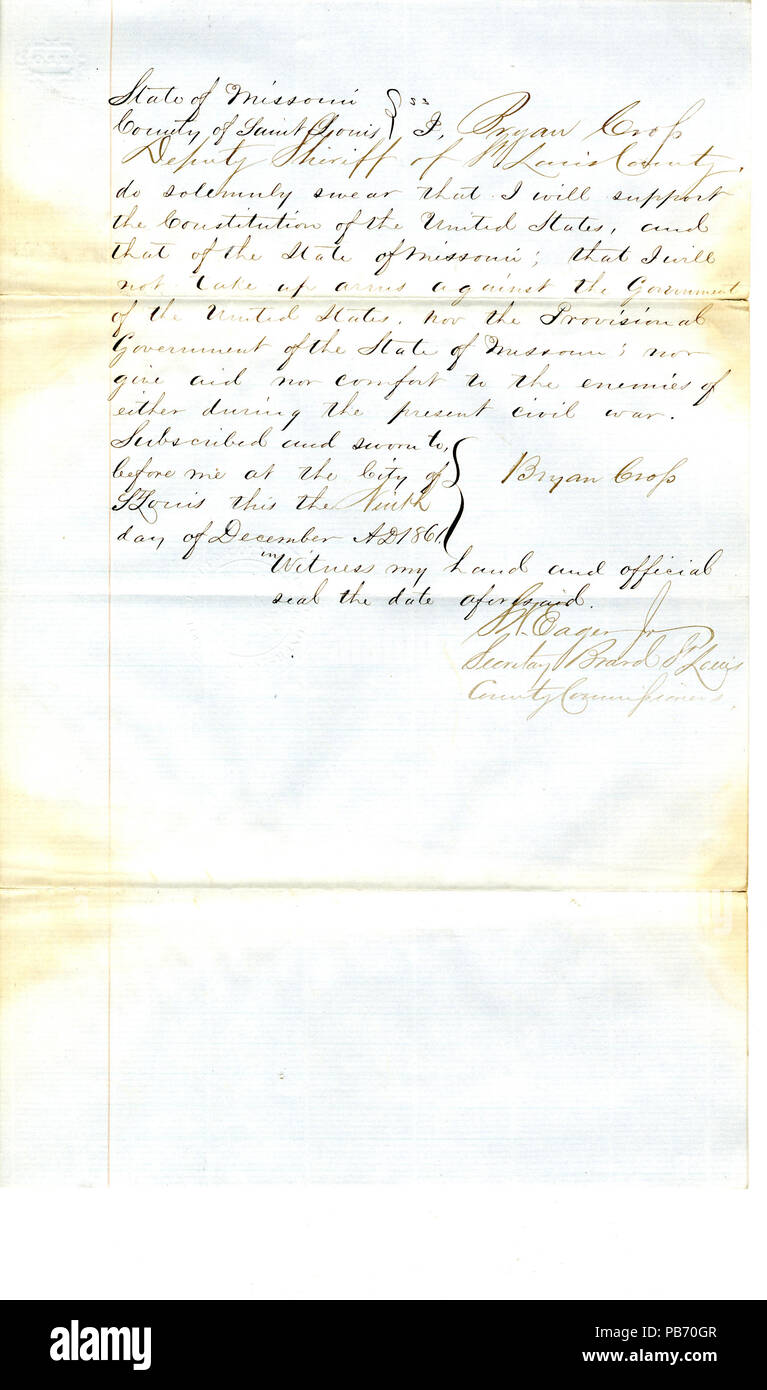 State of Missouri } ss
County of Saint Louis } I, Bryan Cross
Deputy Sheriff of St Louis County,
do solemnly swear that I will support
the Constitution of the United States, and
that of the State of Missouri; that I will
not take up arms against the Government
of the United States, nor the Provisional
Government of the State of Missouri; nor
give aid nor comfort to the enemies of
either during the present civil war.
Subscribed and sworn to,
before me at the City of
St Louis this the Ninth
day of December AD 1861
Bryan Cross
in Witness my hand and official
seal the date aforesaid.
Eager Jr
Secretary Board St Louis
County Commissioners.
alamy
Image ID: PB70GR
www.alamy.com